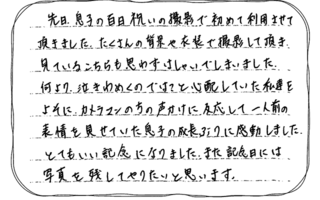 先日息子の百日祝いの撮影で初めて利用させて
頂きました。たくさんの背景や衣装で撮影して頂き、
見ているこちらも思わずはしゃいでしまいました。
何より、泣きわめくのではと心配していた私達を
よそに、カメラマンの方の声かけに反応して一人前の
表情を見せていた息子の成長ぶりに感動しました。
とてもいい記念になりました。また記念日には
写真を残してやりたいと思います。